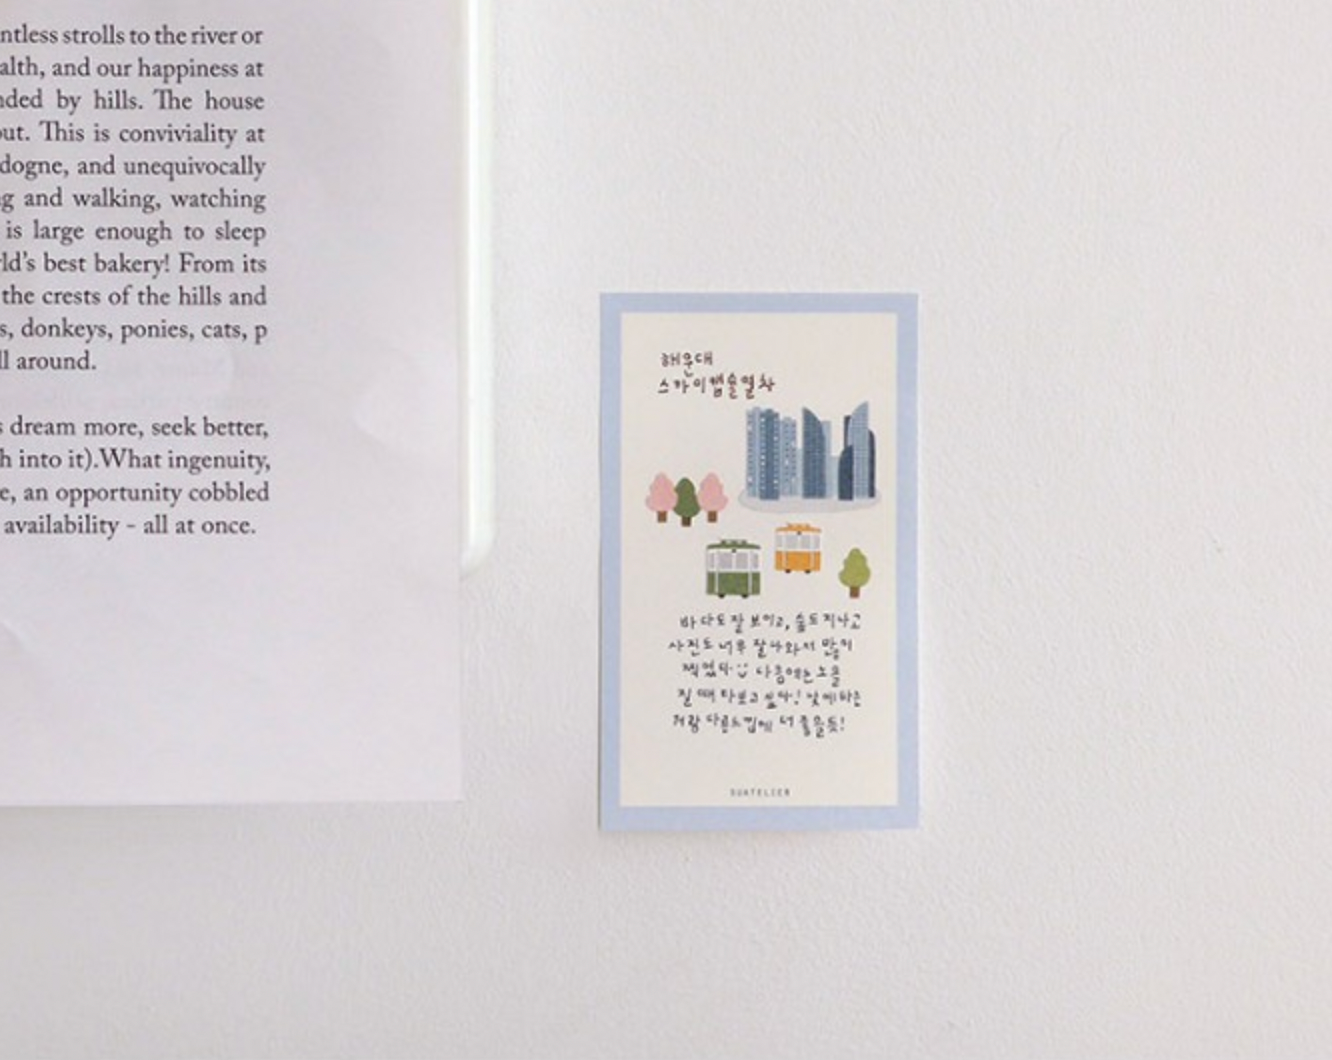 ntless strolls to the river or
alth, and our happiness at
nded by hills. The house
out. This is conviviality at
dogne, and unequivocally
g and walking, watching
is large enough to sleep
rld's best bakery! From its
the crests of the hills and
s, donkeys, ponies, cats, p
ll around.
s dream more, seek better,
h into it).What ingenuity,
e, an opportunity cobbled
availability - all at once.
해운대
스카이캡슐열차
바다도 잘 보이고, 숲도 지나고
사진도 너무 잘나와서 많이
찍었다 다음에는 노을
질 때 타보고 싶다! 낮에타는
거랑 다른느낌에 더 좋을듯!
SUATELIER